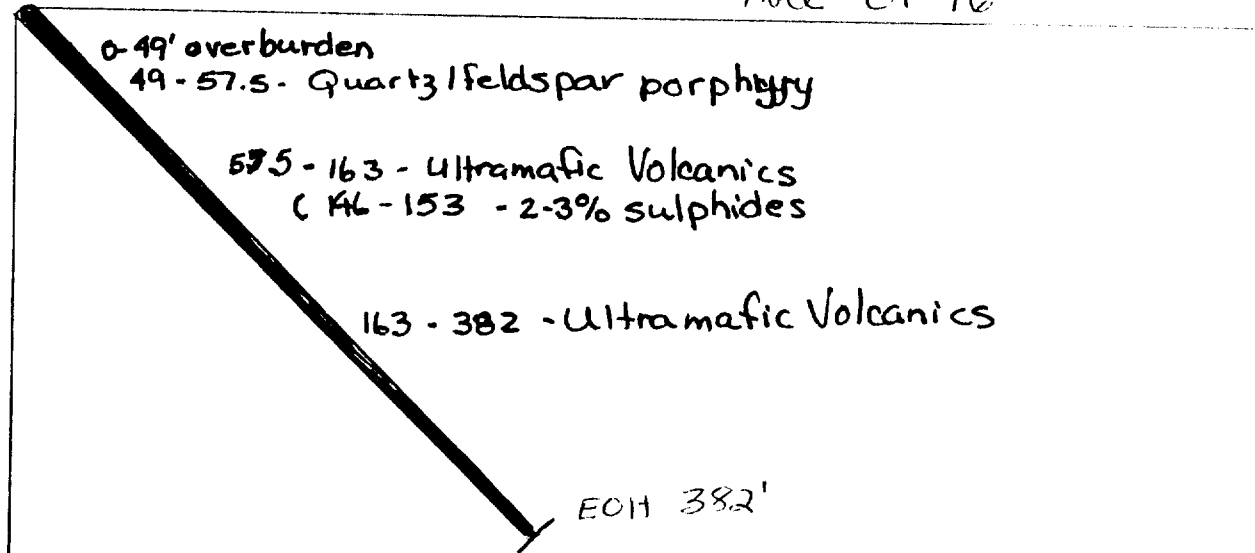 0-49' overburden
49-57.5- Quartz/feldspar porphyry
575-163-Ultramafic Volcanics
(146-153 -2-3% sulphides
163-382-Ultramafic Volcanics
EOH 382'